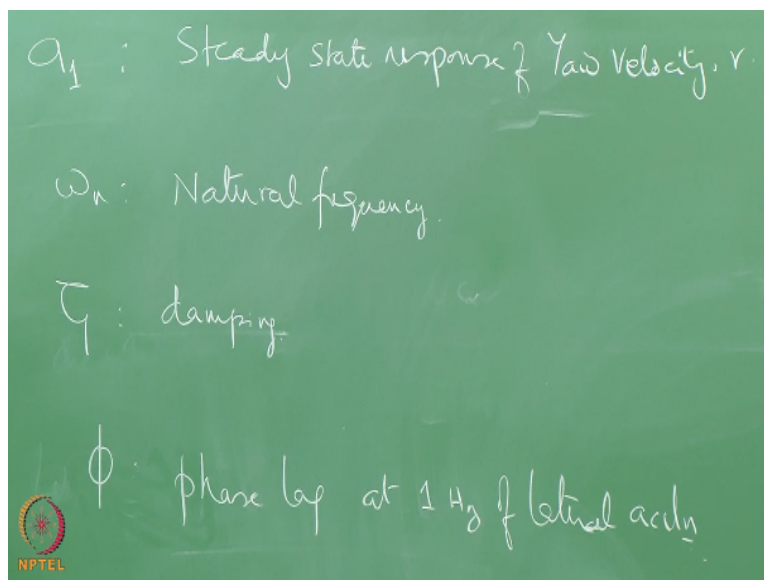 a1 : Steady state response of Yaw Velocity. r.
ωn : Natural frequency.
ζ : damping.
φ : phase lag at 1 Hz of lateral accln
NPTEL